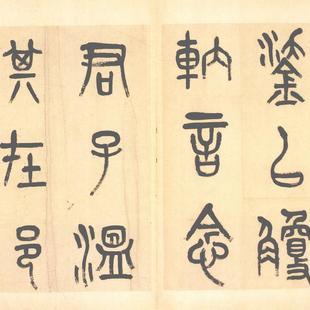 鋈以觼
軜言念
君子溫
其在邑